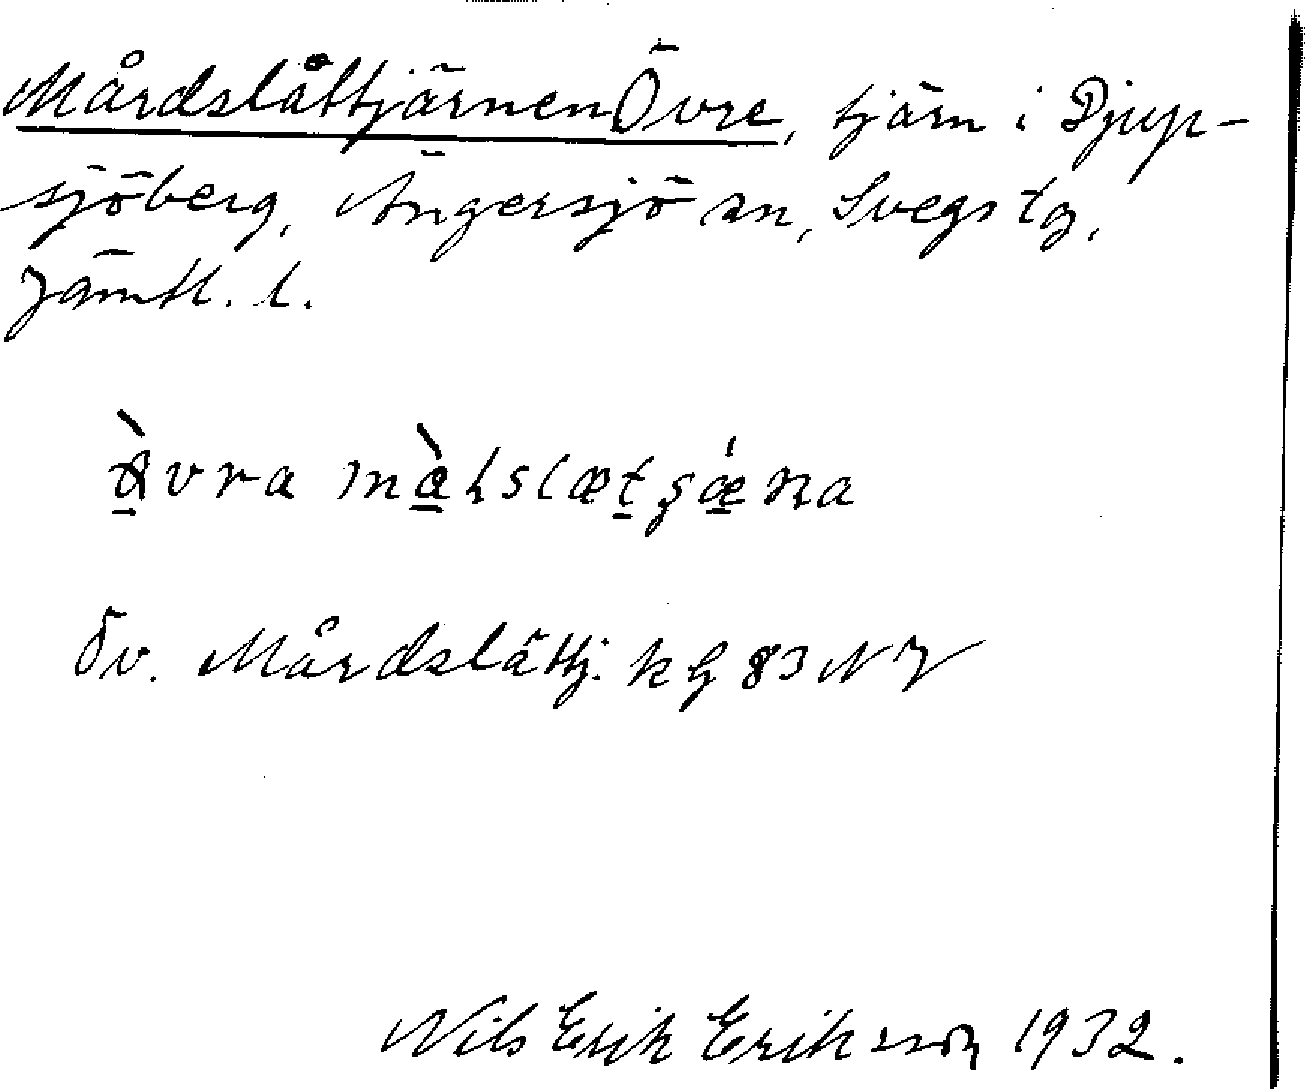 Mårdslåttjärnen Övre, tjärn i Djup-
sjöberg, Ängersjö sn, Svegs tg,
Jämtl. l.
vra
Öv. Mårdslättj. k G 83 NV
Nils Erik Eriksson 1932.